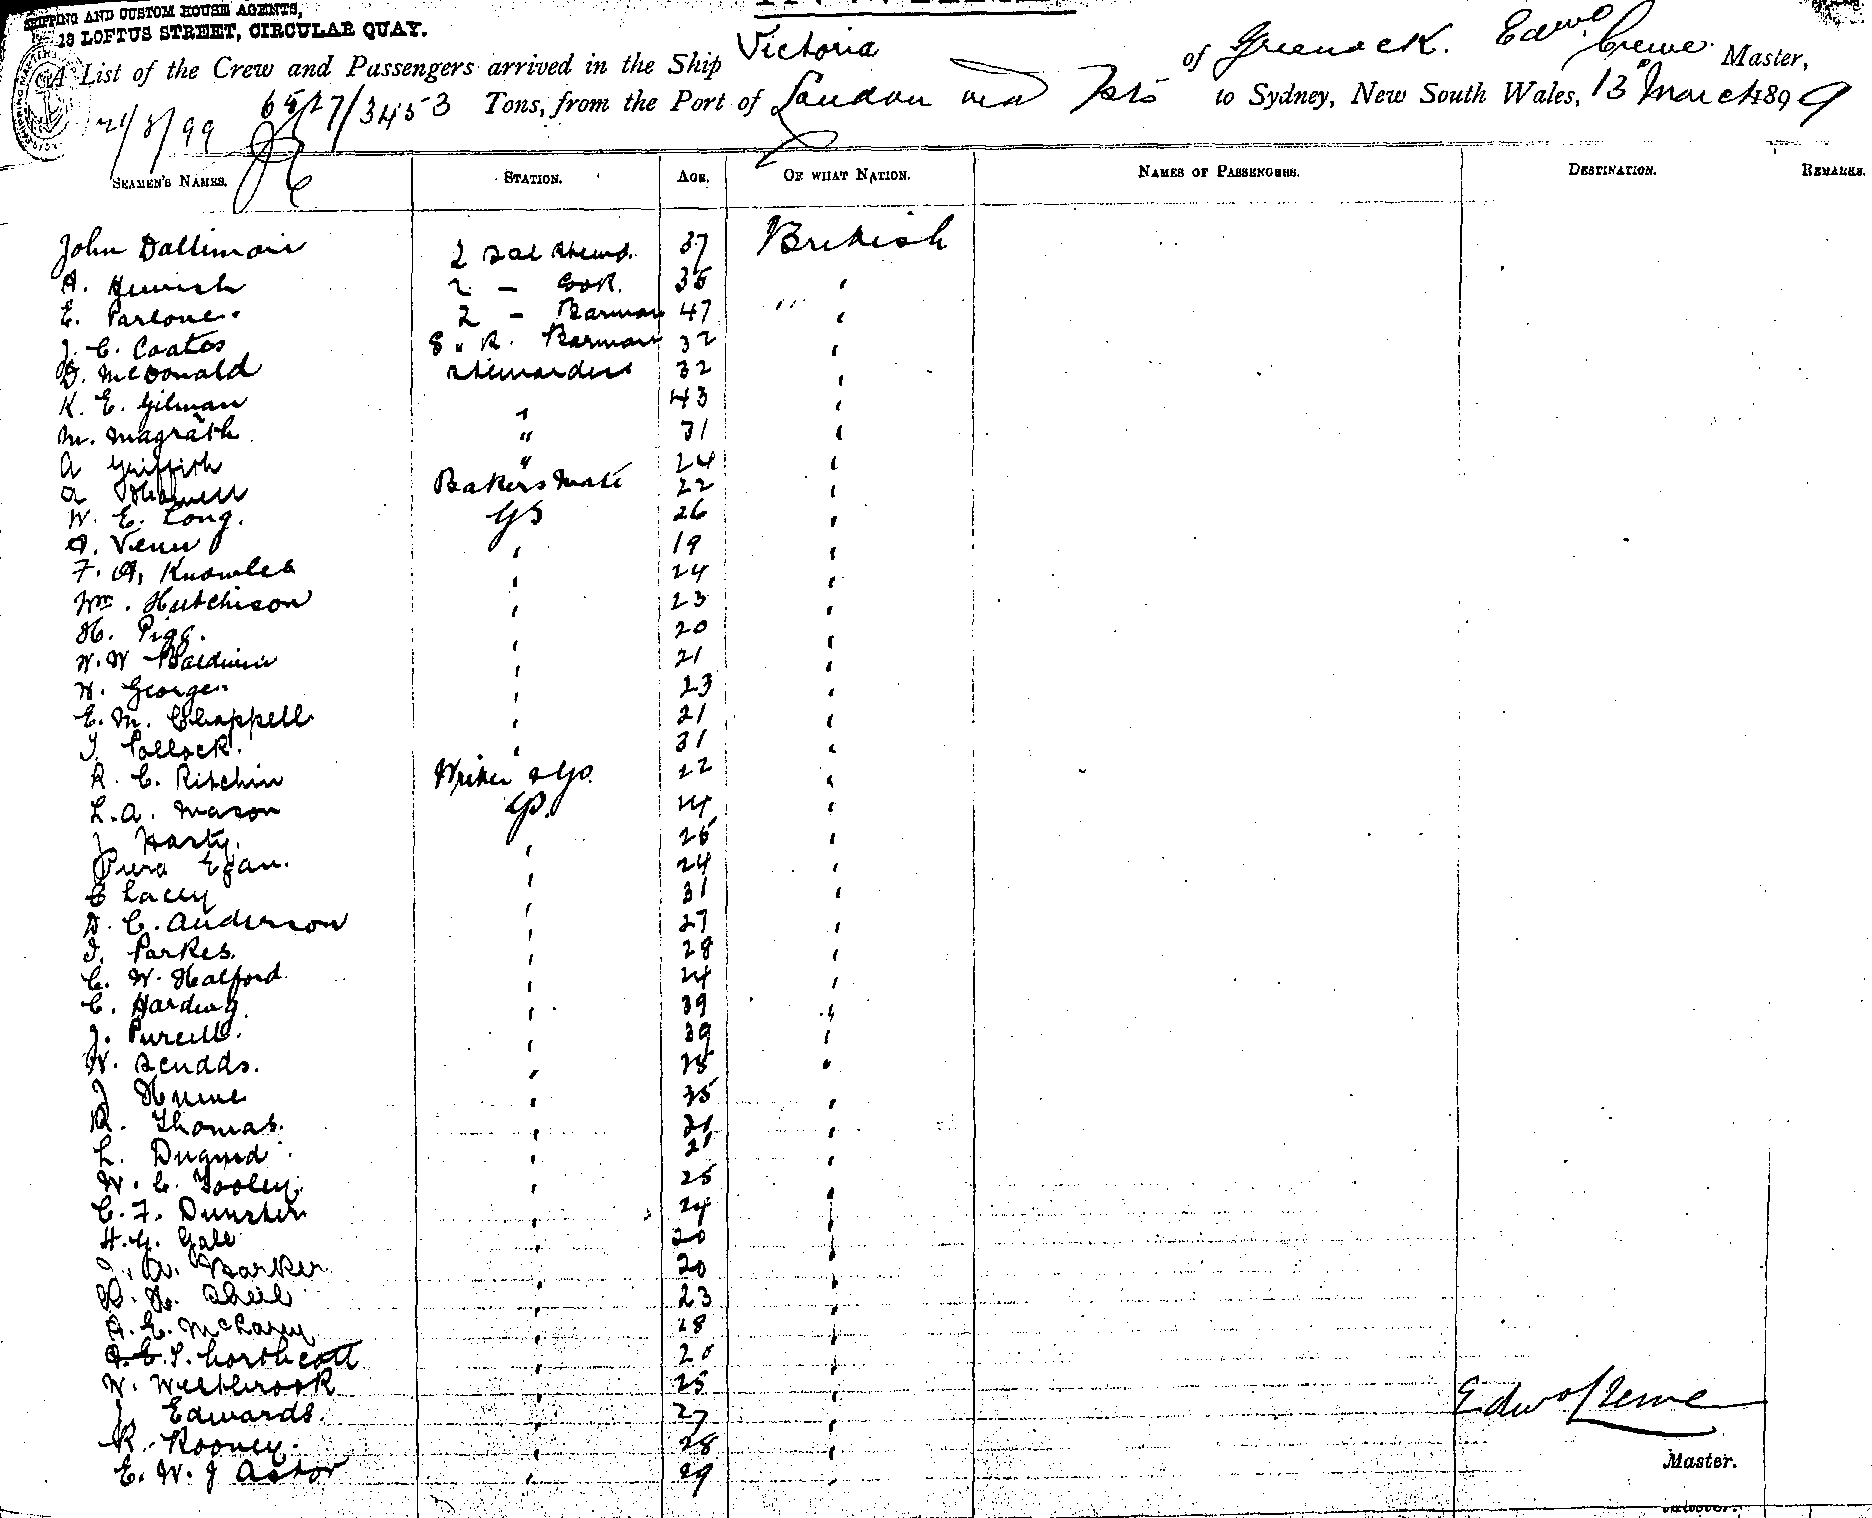 SHIPPING AND CUSTOM HOUSE AGENTS,
13 LOFTUS STREET, CIRCULAR QUAY.
A List of the Crew and Passengers arrived in the Ship Victoria of Greenock. Edwd. Crewe Master,
6527/3453 Tons, from the Port of London via Pts to Sydney, New South Wales, 13 March 1899
21/3/99
SEAMEN'S NAMES. STATION. AGE. OF WHAT NATION. NAMES OF PASSENGERS. DESTINATION. REMARKS.
John Dallimore 2 Sal Stewd. 37 British
A. 2 - Cook. 35 "
E. 2 - Barman 47 "
J. C. Coates S. R. Barman 32 "
D. McDonald Stewardess 32 "
K. E. Gilman " 43 "
M. Magrath " 31 "
A Griffith " 24 "
A Bakers Mate 22 "
W. E. Long. GS 26 "
A. Venn " 19 "
F. A. Knowles " 24 "
Wm. Hutchison " 23 "
H. Pigg. " 20 "
W. W Baldwin " 21 "
W. George " 23 "
E. M. Chappell " 21 "
J. Pollock. " 31 "
R. C. Ritchin Writer & GS. 22 "
L. A. Mason GS. 24 "
J Harty. " 25 "
Egan. " 24 "
C Lacey " 31 "
D. C. Anderson " 27 "
J. Parkes. " 28 "
C. W. Halford " 24 "
C. Harding " 39 "
J. Purcell. " 39 "
W. Scudds. " "
J Hume " 35 "
R. Thomas. " 21 "
L. Duguid " 21 "
W. C. Tooley. " 25 "
C. F. Dunster " 24 "
H. G. Gale " 20 "
J. A. Barker " 20 "
R. H. Sheil " 23 "
A. E. McLaren " 28 "
Northcott " "
W. Westbrook " 25 "
J. Edwards. " 27 "
R. Rooney. " 28 "
E. W. J Astor " 29 "
Edwd Crewe
Master.